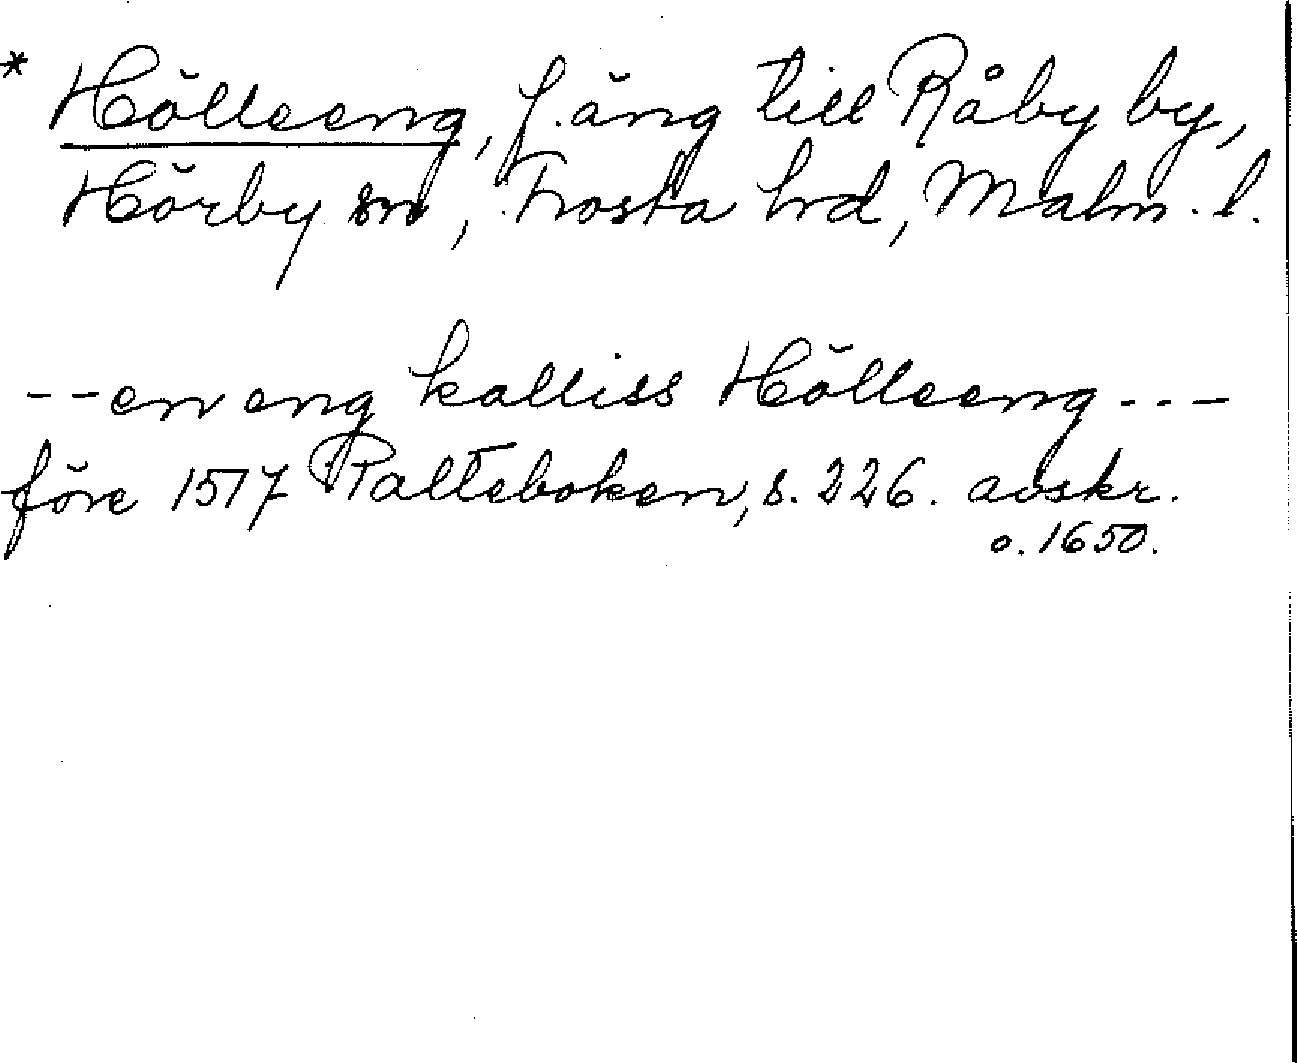 * Hölleeng, f. äng till Råby by,
Hörby sn, Frosta hrd, Malm. l.
-- en eng kalliss Hölleeng ---
före 1517 Palteboken, s. 226. avskr.
o. 1650.